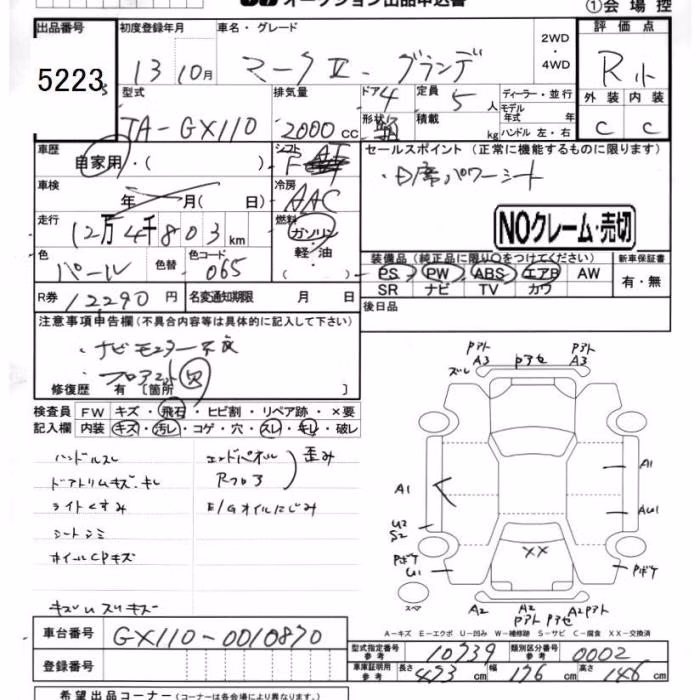 オークション出品申込書
①会場控
出品番号 初度登録年月 車名・グレード 2WD・4WD 評価点
5223 13 10月 マークⅡ・グランデ R小
型式 排気量 ドア 4 定員 5人 ディーラー・並行 外装 内装
TA-GX110 2000cc 形状 積載 kg モデル年式 年 ハンドル 左・右 C C
車歴 シフト セールスポイント (正常に機能するものに限ります)
自家用・( ) F AT ・D席パワーシート
車検 年 月( 日) 冷房 AAC
NOクレーム・売切
走行 12万4千803km 燃料 ガソリン 軽・油 ( )
装備品 (純正品に限り○をつけてください) 新車保証書
PS PW ABS エアB AW 有・無
SR ナビ TV カワ
色 パール 色替 色コード 065
R券 12290円 名変通知期限 月 日 後日品
注意事項申告欄 (不具合内容等は具体的に記入して下さい)
・ナビモニター不良
・フロアマット欠
修復歴 有 [箇所 ]
検査員 FW キズ・飛石・ヒビ割・リペア跡・×要
記入欄 内装 キズ・汚レ・コゲ・穴・スレ・キレ・破レ
ハンドルスレ エンドパネル 歪み
ドアトリムキズ・キレ Rフロア
ライトくすみ E/Gオイルにじみ
シートシミ
ホイルCPキズ
キズUスリキズ
PアトA3 Pアセ PアトA3
ズレ
A1 A1
AU1
U2
S2
XX
Pボケ Pボケ
U1
スペア A2 A2 A2Pアト
Pアト Pアセ
A-キズ E-エクボ U-凹み W-補修跡 S-サビ C-腐食 XX-交換済
車台番号 GX110-0010870
型式指定番号 参考 10739 類別区分番号 参考 0002
登録番号 車庫証明用 参考 長さ 473cm 幅 176cm 高さ 146cm
希望出品コーナー (コーナーは各会場により異なります。)